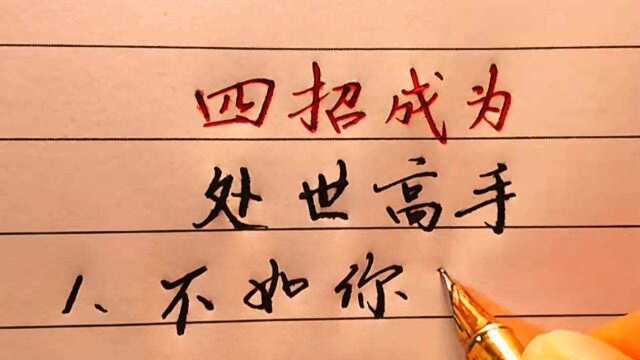 四招成为
处世高手
1、不如你